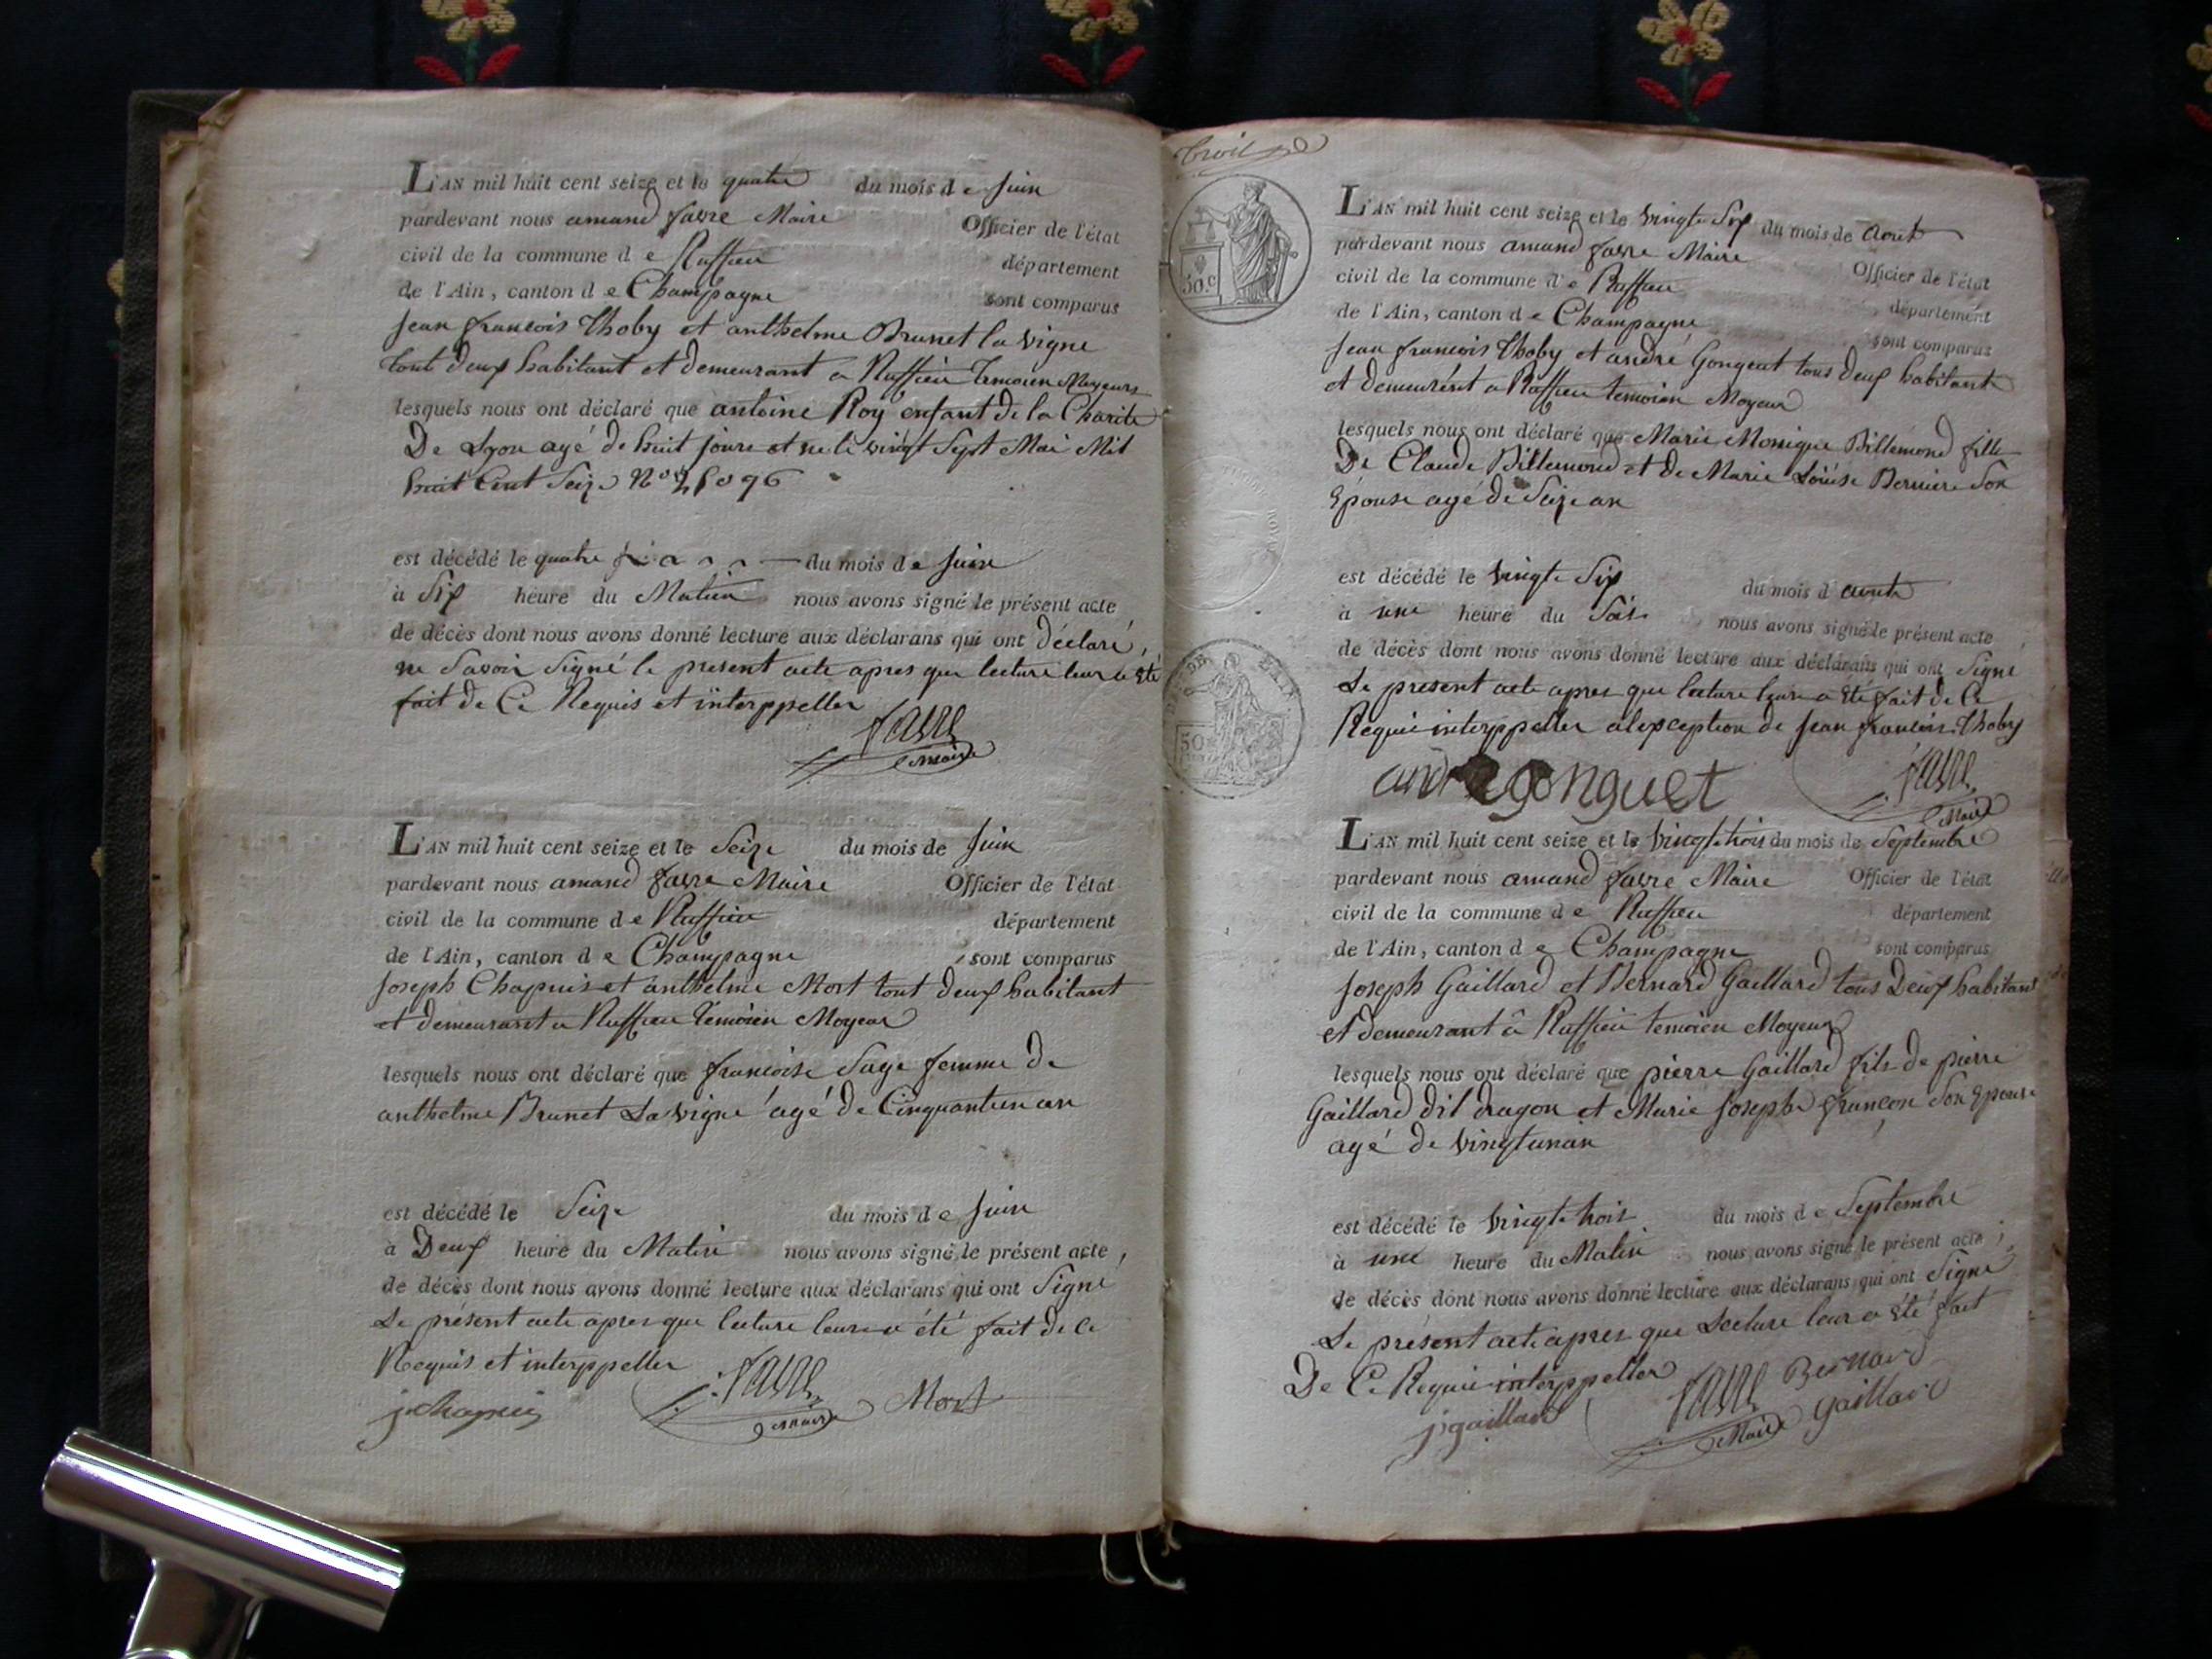 L'AN mil huit cent seize et le quatre du mois de Juin
pardevant nous amand favre Maire Officier de l'état
civil de la commune de Ruffieu département
de l'Ain, canton de Champagne sont comparus
Jean francois Thoby et anthelme Brunet la vigne
tout deux habitant et demeurant a Ruffieu temoien Mojeurs
lesquels nous ont déclaré que antoine Roy enfant de la Charité
De Lyon agé de huit jours et ne le vingt Sept Mai Mil
huit Cent Seize N°
est décédé le quatre du mois de Juin
à Six heure du Matin nous avons signé le présent acte
de décès dont nous avons donné lecture aux déclarans qui ont déclaré,
ne Savoir Signé le present acte apres que lecture leur a été
fait de Ce Requis et interppeller
favre
Maire
L'AN mil huit cent seize et le Seize du mois de Juin
pardevant nous amand favre Maire Officier de l'état
civil de la commune de Ruffieu département
de l'Ain, canton de Champagne sont comparus
Joseph Chapuis et anthelme Mort tout deux habitant
et demeurant a Ruffieu temoien Mojeur
lesquels nous ont déclaré que francoise Sage femme de
anthelme Brunet La vigne agé de Cinquantun an
est décédé le Seize du mois de Juin
à Deux heure du Matin nous avons signé le présent acte,
de décès dont nous avons donné lecture aux déclarans qui ont Signé
Le présent acte apres que lecture leur a été fait de Ce
Requis et interppeller
j chapuis favre Mort
Maire
50.c
L'AN mil huit cent seize et le vingte Six du mois de aout
pardevant nous amand favre Maire Officier de l'état
civil de la commune de Ruffieu département
de l'Ain, canton de Champagne sont comparus
Jean francois Thoby et andré Gonguet tous deux habitant
et demeurént a Ruffieu temoien Mojeur
lesquels nous ont déclaré que Marie Monique Billemond fille
De Claude Billemond et de Marie Loüise Berniere Son
Epouse agé de Seize an
est décédé le vingte Six du mois d'aoute
à une heure du Soir nous avons signé le présent acte
de décès dont nous avons donné lecture aux déclarans qui ont Signé
Le present acte apres que lecture leur a été fait de Ce
Requis interppeller alexception de Jean francois Thoby
andre gonguet favre
Maire
50
L'AN mil huit cent seize et le vingt trois du mois de Septembre
pardevant nous amand favre Maire Officier de l'état
civil de la commune de Ruffieu département
de l'Ain, canton de Champagne sont comparus
Joseph Gaillard et Bernard Gaillard tous Deux habitant
et demeurant â Ruffieu temoien Mojeur
lesquels nous ont déclaré que pierre Gaillard fils de pierre
Gaillard dit dragon et Marie Josephe françon Son Epouse
agé de vingtunan
est décédé le vingt trois du mois de Septembre
à une heure du Matin nous avons signé le présent acte;
de décès dont nous avons donné lecture aux déclarans qui ont Signé
Le présent acte apres que Lecture leur a été fait
De Ce Requis interppeller
j gaillard favre Bernard
Maire gaillard